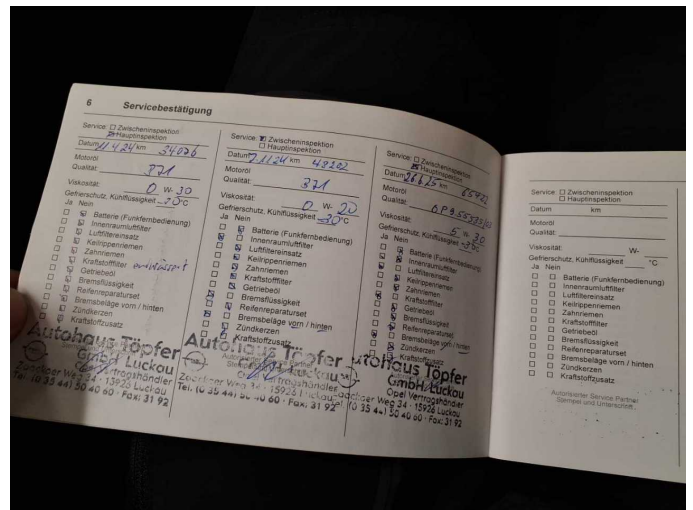 6 Servicebestätigung
Service: Zwischeninspektion
Hauptinspektion
Datum 11.4.24 km 34076
Motoröl
Qualität: 371
Viskosität: 0 W- 30
Gefrierschutz, Kühlflüssigkeit -30 °C
Ja Nein
Batterie (Funkfernbedienung)
Innenraumluftfilter
Luftfiltereinsatz
Keilrippenriemen
Zahnriemen
Kraftstofffilter entwässert
Getriebeöl
Bremsflüssigkeit
Reifenreparaturset
Bremsbeläge vorn / hinten
Zündkerzen
Kraftstoffzusatz
Autohaus Töpfer
GmbH Luckau
Opel Vertragshändler
Zaackoer Weg 34 · 15926 Luckau
Tel. (0 35 44) 50 40 60 · Fax: 31 92
Service: Zwischeninspektion
Hauptinspektion
Datum 7.11.24 km 49202
Motoröl
Qualität: 371
Viskosität: 0 W- 20
Gefrierschutz, Kühlflüssigkeit -30 °C
Ja Nein
Batterie (Funkfernbedienung)
Innenraumluftfilter
Luftfiltereinsatz
Keilrippenriemen
Zahnriemen
Kraftstofffilter
Getriebeöl
Bremsflüssigkeit
Reifenreparaturset
Bremsbeläge vorn / hinten
Zündkerzen
Kraftstoffzusatz
Autohaus Töpfer
GmbH Luckau
Opel Vertragshändler
Zaackoer Weg 34 · 15926 Luckau
Tel. (0 35 44) 50 40 60 · Fax: 31 92
Service: Zwischeninspektion
Hauptinspektion
Datum 26.6.25 km
Motoröl
Qualität:
Viskosität: 5 W- 30
Gefrierschutz, Kühlflüssigkeit °C
Ja Nein
Batterie (Funkfernbedienung)
Innenraumluftfilter
Luftfiltereinsatz
Keilrippenriemen
Zahnriemen
Kraftstofffilter
Getriebeöl
Bremsflüssigkeit
Reifenreparaturset
Bremsbeläge vorn / hinten
Zündkerzen
Kraftstoffzusatz
Autohaus Töpfer
GmbH Luckau
Opel Vertragshändler
Zaackoer Weg 34 · 15926 Luckau
Tel. (0 35 44) 50 40 60 · Fax: 31 92
Service: Zwischeninspektion
Hauptinspektion
Datum km
Motoröl
Qualität:
Viskosität: W-
Gefrierschutz, Kühlflüssigkeit °C
Ja Nein
Batterie (Funkfernbedienung)
Innenraumluftfilter
Luftfiltereinsatz
Keilrippenriemen
Zahnriemen
Kraftstofffilter
Getriebeöl
Bremsflüssigkeit
Reifenreparaturset
Bremsbeläge vorn / hinten
Zündkerzen
Kraftstoffzusatz
Autorisierter Service Partner
Stempel und Unterschrift